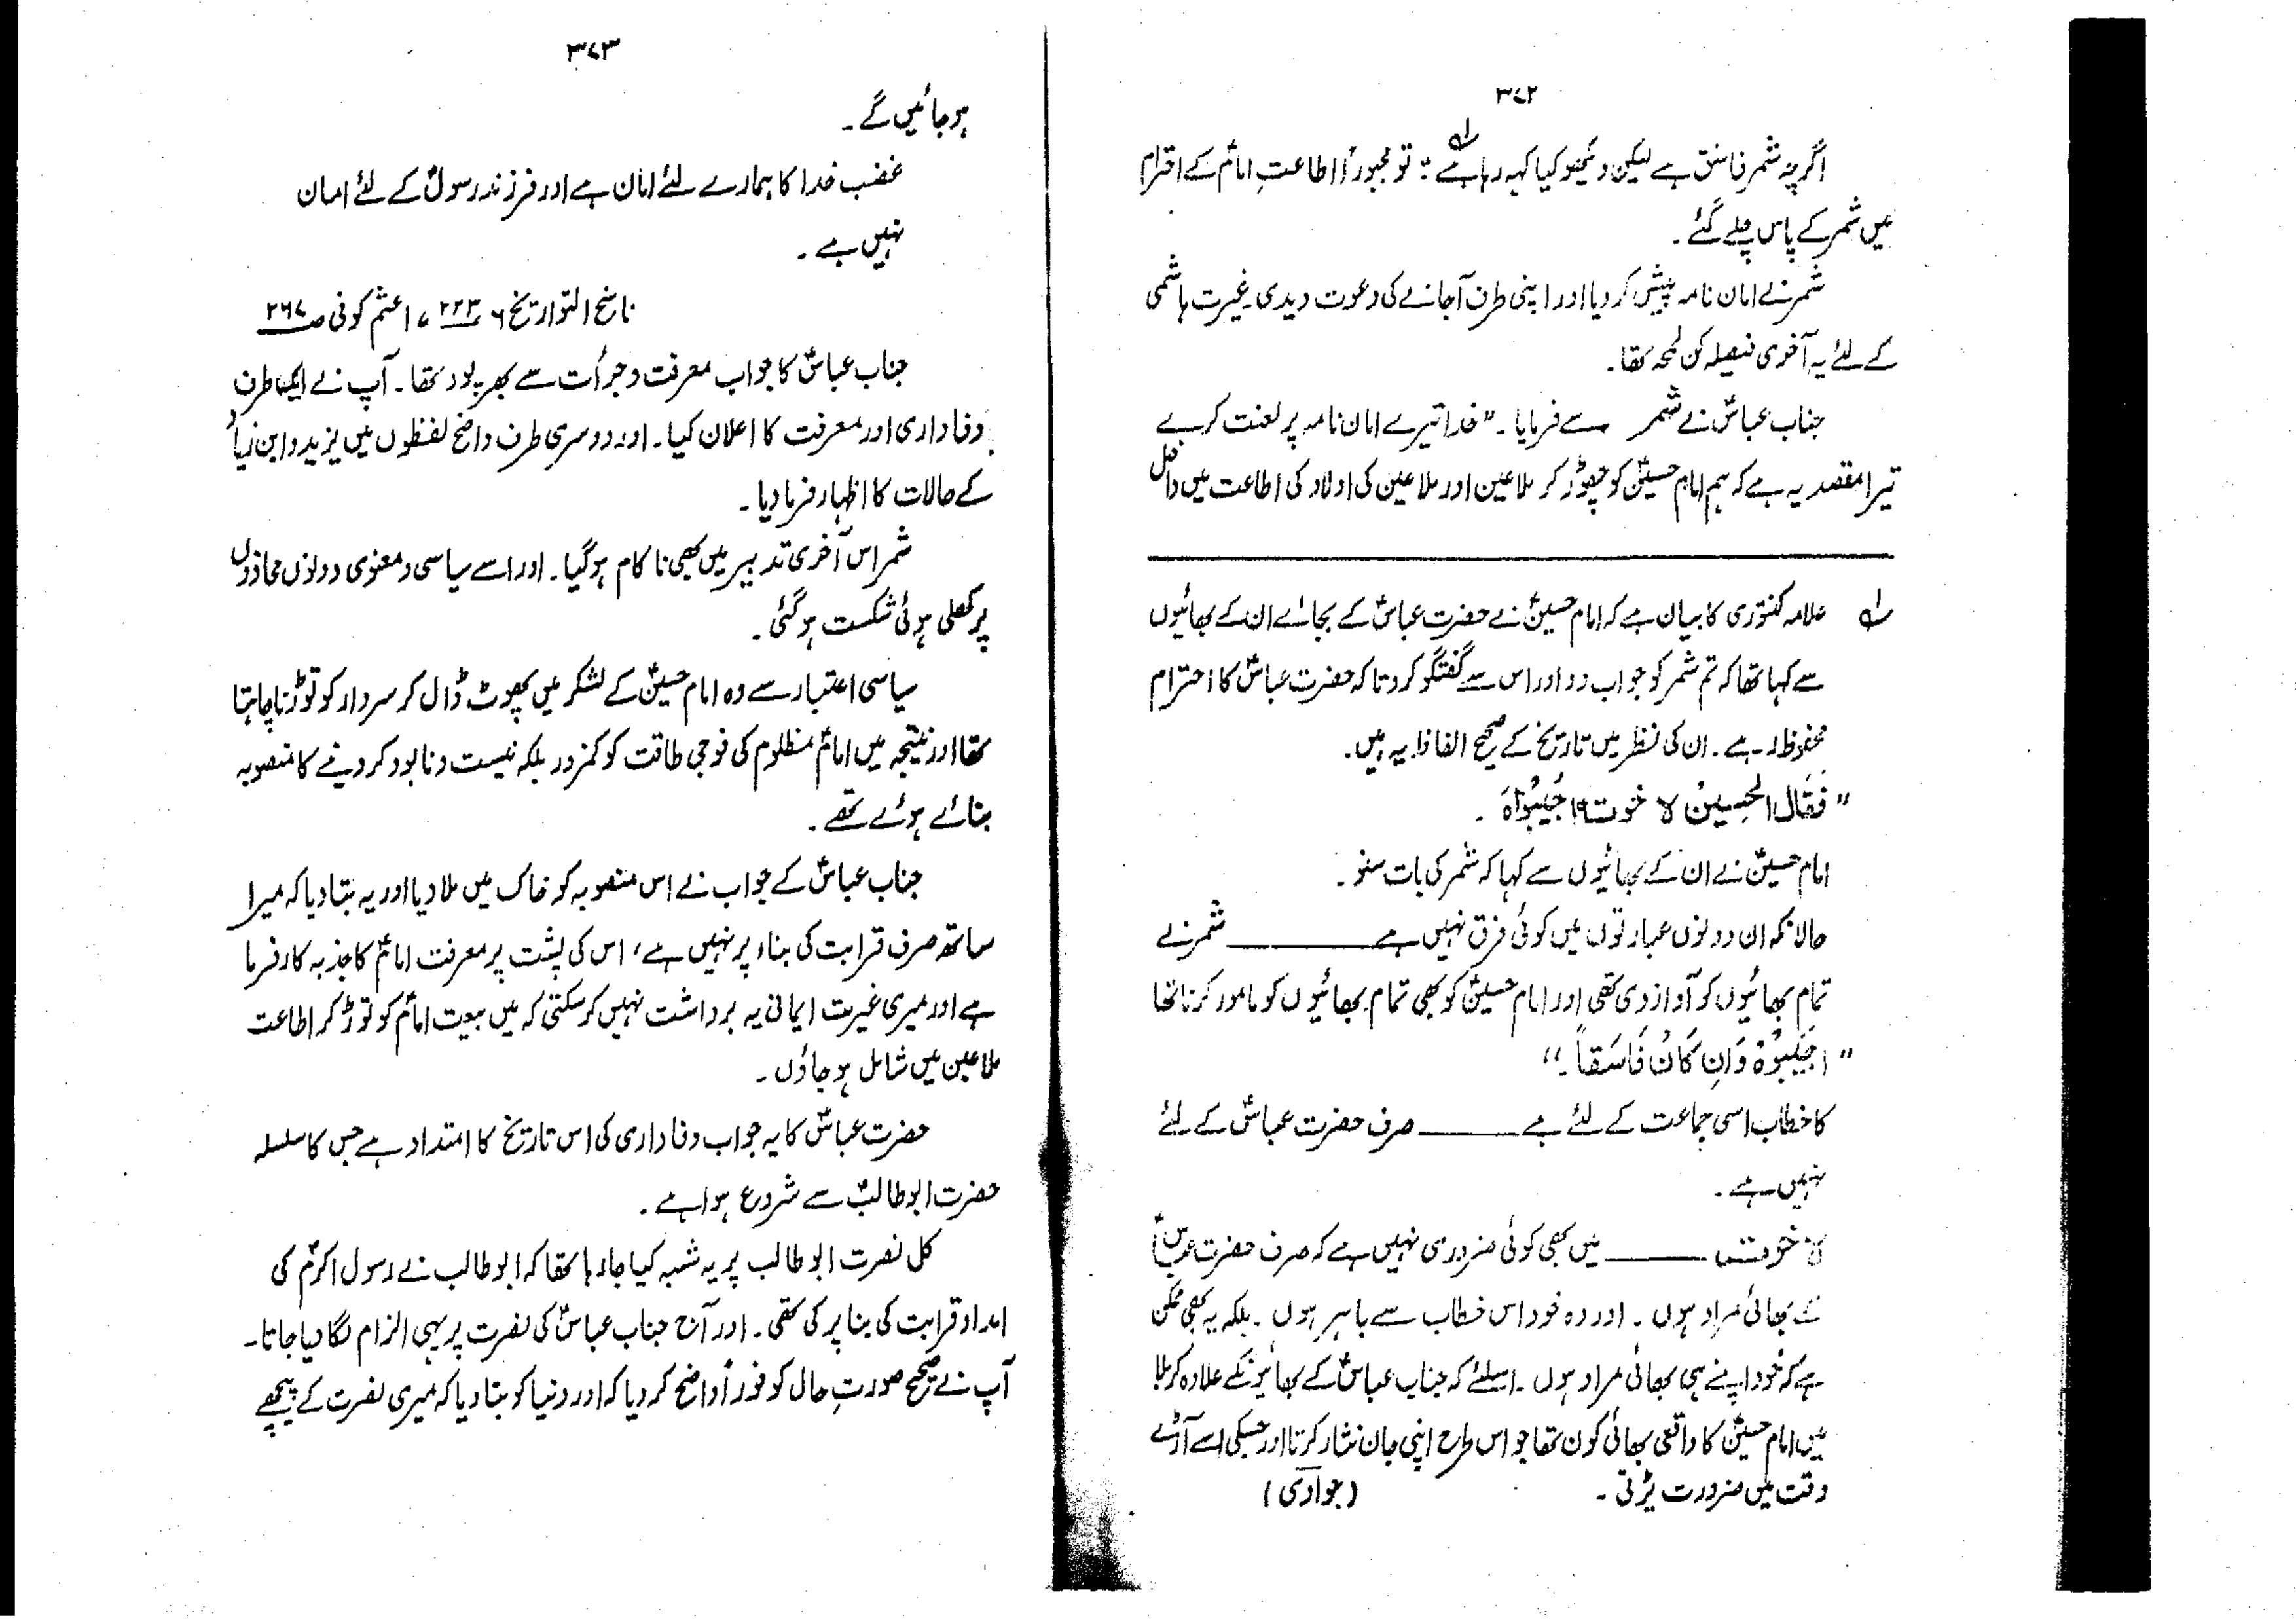 ۳۷۲
اگرچہ شمر فاسق ہے لیکن دیکھو کیا کہہ رہا ہے؟ تو مجبوراً اطاعتِ امامؑ کے احترام
میں شمر کے پاس چلے گئے۔
شمر نے امان نامہ پیش کر دیا اور اپنی طرف آجانے کی دعوت دیدی۔ غیرت ہاشمی
کے لئے یہ آخری فیصلہ کن لمحہ تھا۔
جناب عباسؑ نے شمر سے فرمایا۔ "خدا تیرے امان نامہ پر لعنت کرے
تیرا مقصد یہ ہے کہ ہم امام حسینؑ کو چھوڑ کر ملاعین اور ملاعین کی اولاد کی اطاعت میں داخل
لہ علامہ کنتوری کا بیان ہے کہ امام حسینؑ نے حضرت عباسؑ کے بجائے ان کے بھائیوں
سے کہا تھا کہ تم شمر کو جواب دو اور اس سے گفتگو کرو تاکہ حضرت عباسؑ کا احترام
محفوظ رہے۔ ان کی نظر میں تاریخ کے صحیح الفاظ یہ ہیں۔
"فَقَالَ الحسینُ لا خوتہ اجیبُواہُ۔
امام حسینؑ نے ان کے بھائیوں سے کہا کہ شمر کی بات سنو۔
حالانکہ ان دونوں عبارتوں میں کوئی فرق نہیں ہے ــــــــ شمر نے
تمام بھائیوں کو آواز دی تھی اور امام حسینؑ کو بھی تمام بھائیوں کو مامور کرنا تھا
"اجیبُوہُ وَاِن کَانَ فَاسقاً۔"
کا خطاب اسی جماعت کے لئے ہے ــــــــ صرف حضرت عباسؑ کے لئے
نہیں ہے۔
لاخوتہ ــــــــ میں بھی کوئی ضروری نہیں ہے کہ صرف حضرت عباسؑ
کے بھائی مراد ہوں۔ اور وہ خود اس خطاب سے باہر ہوں۔ بلکہ یہ بھی ممکن
ہے کہ خود اپنے ہی بھائی مراد ہوں۔ اسلئے کہ جناب عباسؑ کے بھائیوں کے علاوہ کربلا
میں امام حسینؑ کا واقعی بھائی کون تھا جو اس طرح اپنی جان نثار کرتا اور جسکی اسے آڑے
وقت میں ضرورت پڑتی۔ (جوادی)
۳۷۳
ہو جائیں گے۔
غضب خدا کا ہمارے لئے امان ہے اور فرزند رسولؐ کے لئے امان
نہیں ہے۔
ناسخ التواریخ ۶ ۲۲۳، اعثم کوفی صـ ۲۶۷
جناب عباسؑ کا جواب معرفت و جرأت سے بھرپور تھا۔ آپ نے ایک طرف
وفاداری اور معرفت کا اعلان کیا۔ اور دوسری طرف واضح لفظوں میں یزید و ابن زیاد
کے حالات کا اظہار فرما دیا۔
شمر اس آخری تدبیر میں بھی ناکام ہو گیا۔ اور اسے سیاسی و معنوی دونوں محاذوں
پر کھلی ہوئی شکست ہو گئی۔
سیاسی اعتبار سے وہ امام حسینؑ کے لشکر میں پھوٹ ڈال کر سردار کو توڑنا چاہتا
تھا اور نتیجہ میں امامؑ مظلوم کی فوجی طاقت کو کمزور بلکہ نیست و نابود کر دینے کا منصوبہ
بنائے ہوئے تھے۔
جناب عباسؑ کے جواب نے اس منصوبہ کو خاک میں ملا دیا اور یہ بتا دیا کہ میرا
ساتھ صرف قرابت کی بناء پر نہیں ہے، اس کی پشت پر معرفت امامؑ کا جذبہ کارفرما
ہے اور میری غیرت ایمانی یہ برداشت نہیں کر سکتی کہ میں بیعت امامؑ کو توڑ کر اطاعت
ملاعین میں شامل ہو جاؤں۔
حضرت عباسؑ کا یہ جواب وفاداری کی اس تاریخ کا امتداد ہے جس کا سلسلہ
حضرت ابوطالبؑ سے شروع ہوا ہے۔
کل نصرت ابو طالب پر یہ شبہ کیا جا رہا تھا کہ ابو طالب نے رسول اکرمؐ کی
امداد قرابت کی بنا پر کی تھی۔ اور آج جناب عباسؑ کی نصرت پر یہی الزام لگا دیا جاتا۔
آپ نے صحیح صورتِ حال کو فوراً واضح کر دیا کہ اور دنیا کو بتا دیا کہ میری نصرت کے پیچھے